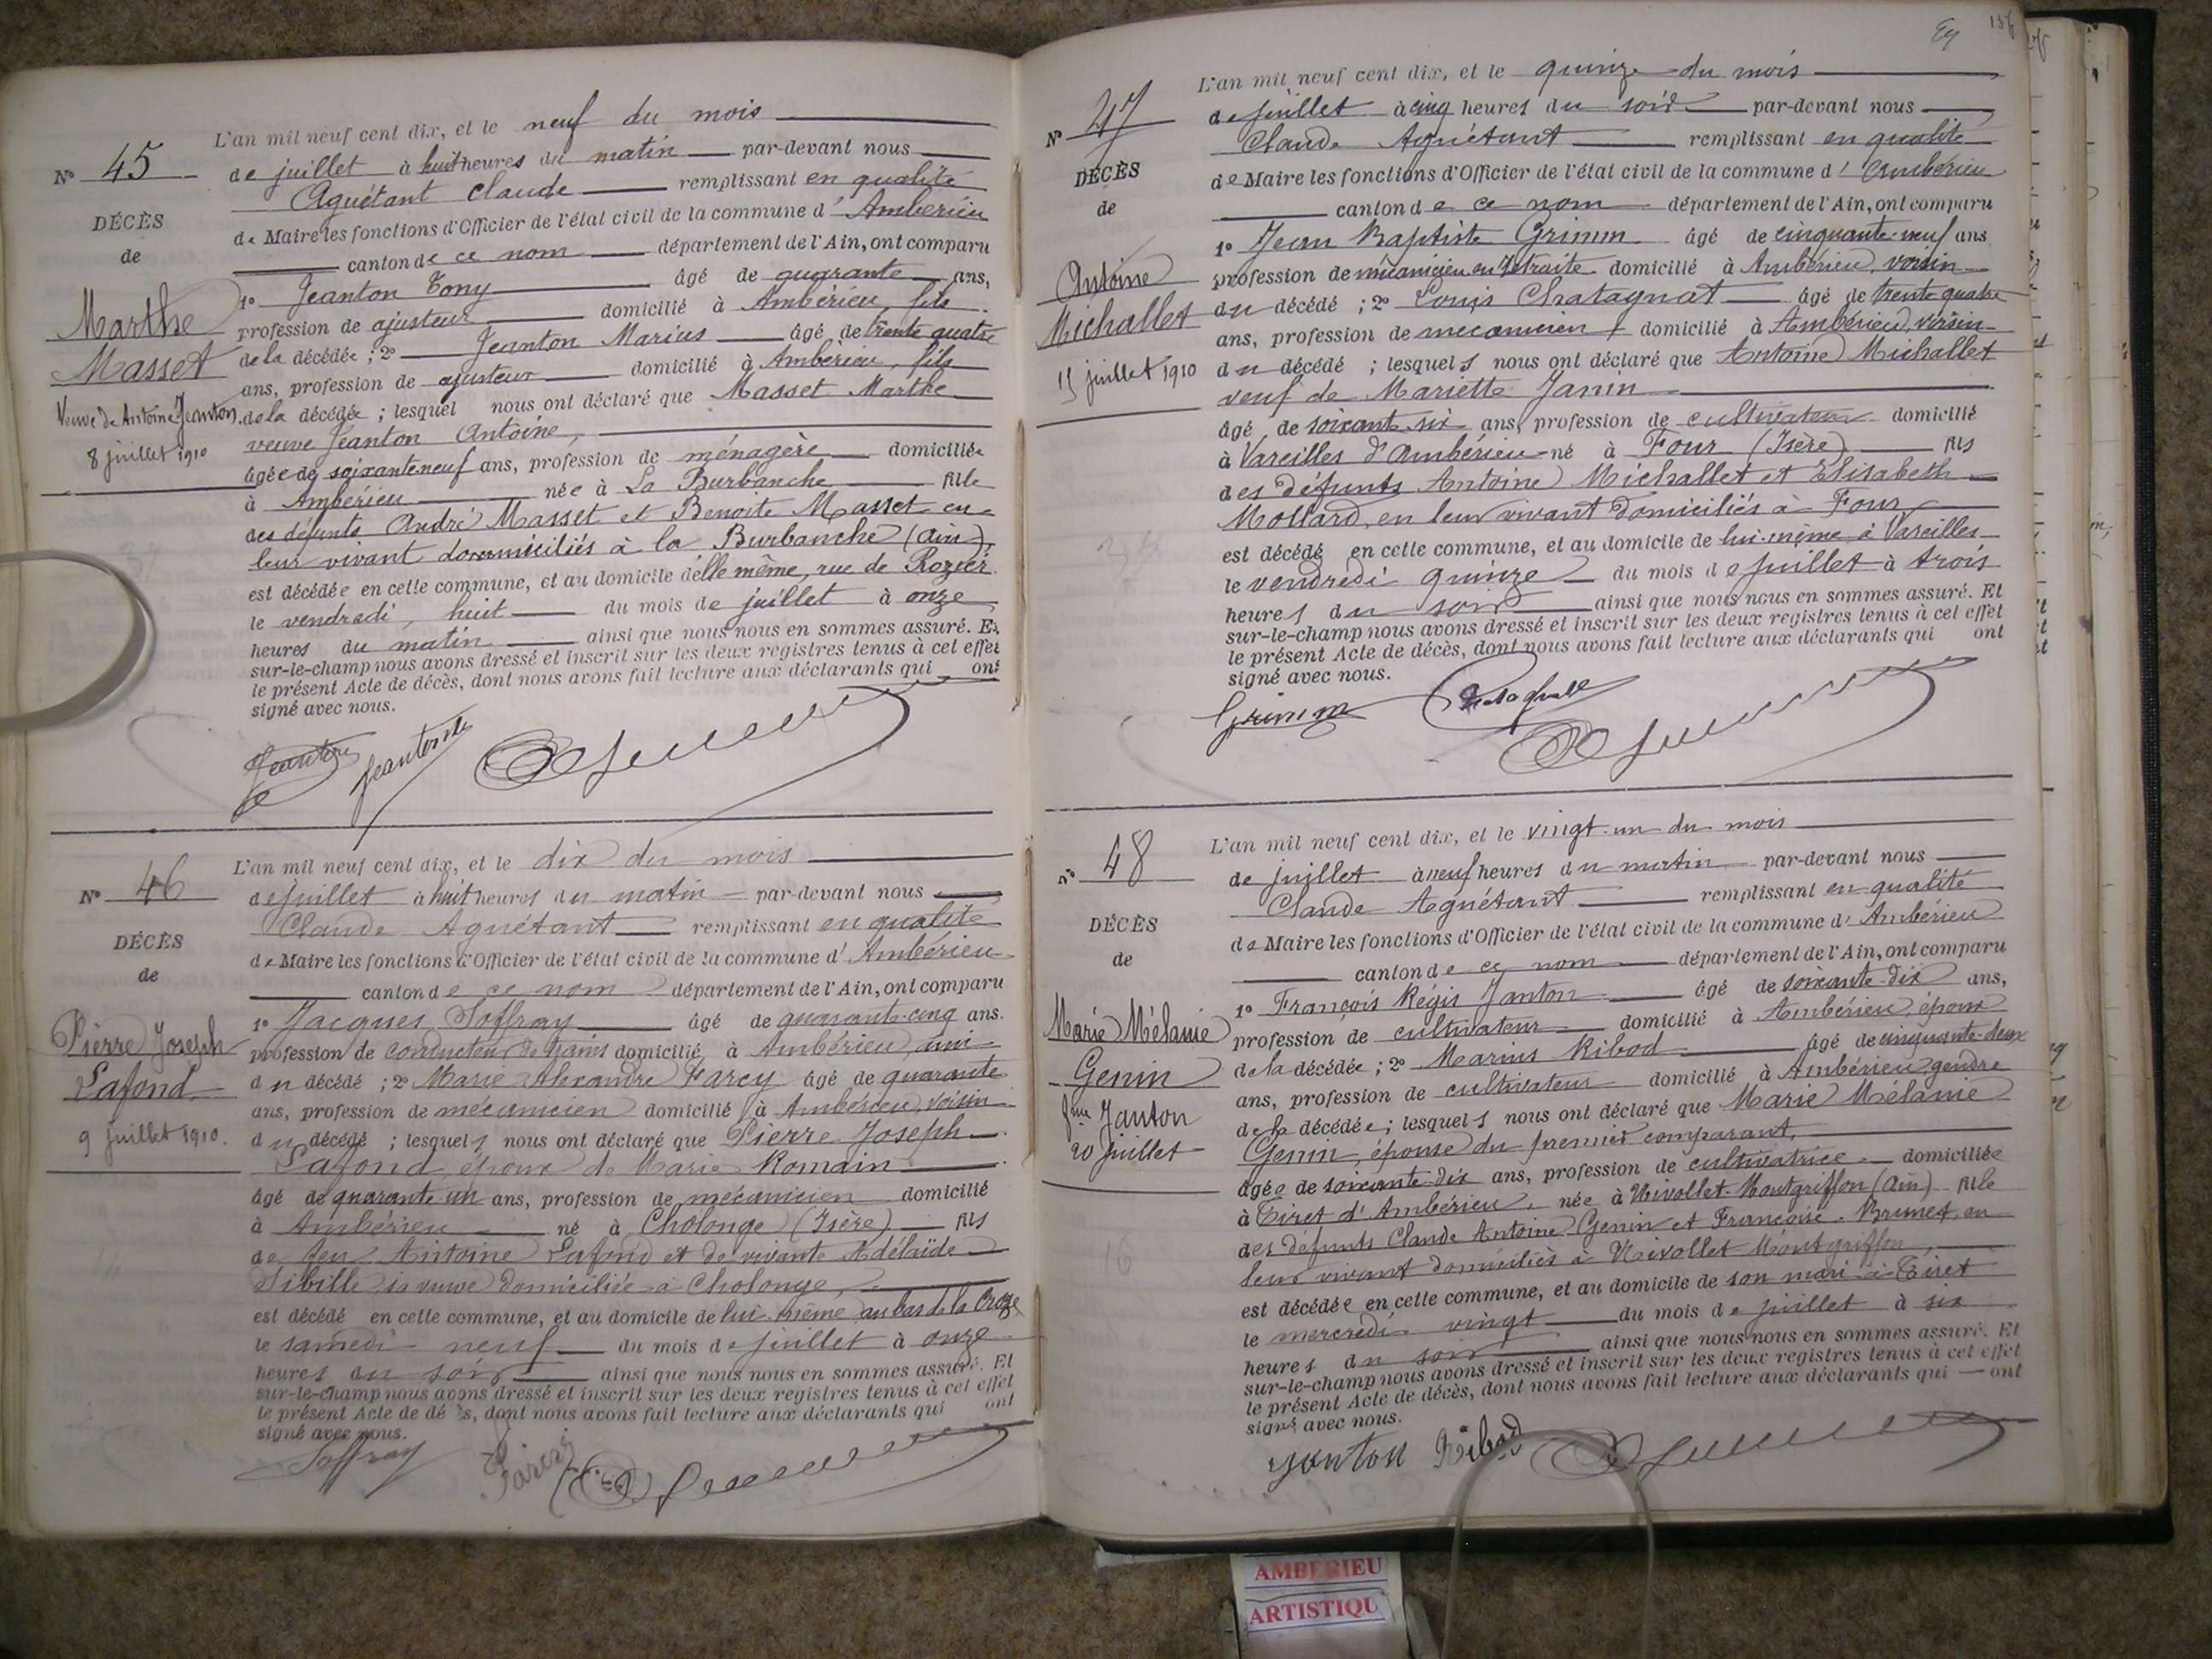 L'an mil neuf cent dix, et le neuf du mois
N° 45
de juillet à huit heures du matin par-devant nous
Aguétant Claude remplissant en qualité
DÉCÈS
de Maire les fonctions d'Officier de l'état civil de la commune d' Ambérieu
de
canton de ce nom département de l'Ain, ont comparu
1° Jeanton Tony âgé de quarante ans,
Marthe
profession de ajusteur domicilié à Ambérieu, fils
Masset
de la décédée ; 2° Jeanton Marius âgé de trente quatre
ans, profession de ajusteur domicilié à Ambérieu, fils
Veuve de Antoine Jeanton
de la décédée ; lesquel nous ont déclaré que Masset Marthe
8 juillet 1910
veuve Jeanton Antoine,
âgée de soixante neuf ans, profession de ménagère domiciliée
à Ambérieu née à La Burbanche fille
des défunts André Masset et Benoite Masset en
leur vivant domiciliés à la Burbanche (Ain)
est décédée en cette commune, et au domicile d'elle même, rue de Rozier
le vendredi, huit du mois de juillet à onze
heures du matin ainsi que nous nous en sommes assuré. Et
sur-le-champ nous avons dressé et inscrit sur les deux registres tenus à cet effet
le présent Acte de décès, dont nous avons fait lecture aux déclarants qui ont
signé avec nous.
Jeanton
L'an mil neuf cent dix, et le dix du mois
N° 46
de juillet à huit heures du matin par-devant nous
Claude Aguétant remplissant en qualité
DÉCÈS
de Maire les fonctions d'Officier de l'état civil de la commune d' Ambérieu
de
canton de ce nom département de l'Ain, ont comparu
1° Jacques Soffray âgé de quarante-cinq ans.
Pierre Joseph
profession de conducteur de trains domicilié à Ambérieu, ami
Lafond
du décédé ; 2° Marie Alexandre Farcy âgé de quarante
ans, profession de mécanicien domicilié à Ambérieu, voisin
9 juillet 1910.
du décédé ; lesquels nous ont déclaré que Pierre Joseph
Lafond époux de Marie Romain
âgé de quarante-un ans, profession de mécanicien domicilié
à Ambérieu né à Cholonge (Isère) fils
de feu Antoine Lafond et de vivante Adélaïde
Sibille, sa veuve domiciliée à Cholonge,
est décédé en cette commune, et au domicile de lui-même au bas de la Croze
le samedi neuf du mois de juillet à onze
heures du soir ainsi que nous nous en sommes assuré. Et
sur-le-champ nous avons dressé et inscrit sur les deux registres tenus à cet effet
le présent Acte de décès, dont nous avons fait lecture aux déclarants qui ont
signé avec nous.
Soffray Farcy
L'an mil neuf cent dix, et le quinze du mois
N° 47
de juillet à cinq heures du soir par-devant nous
Claude Aguétant remplissant en qualité
DÉCÈS
de Maire les fonctions d'Officier de l'état civil de la commune d' Ambérieu
de
canton de ce nom département de l'Ain, ont comparu
1° Jean Baptiste Grimm âgé de cinquante-neuf ans
Antoine
profession de mécanicien en retraite domicilié à Ambérieu, voisin
Michallet
du décédé ; 2° Louis Chatagnat âgé de trente quatre
ans, profession de mécanicien domicilié à Ambérieu, voisin
15 juillet 1910
du décédé ; lesquels nous ont déclaré que Antoine Michallet
veuf de Mariette Janin
âgé de soixante-six ans, profession de cultivateur domicilié
à Vareilles d'Ambérieu né à Four (Isère) fils
des défunts Antoine Michallet et Elisabeth
Mollard, en leur vivant domiciliés à Four
est décédé en cette commune, et au domicile de lui-même à Vareilles
le vendredi quinze du mois de juillet à trois
heures du soir ainsi que nous nous en sommes assuré. Et
sur-le-champ nous avons dressé et inscrit sur les deux registres tenus à cet effet
le présent Acte de décès, dont nous avons fait lecture aux déclarants qui ont
signé avec nous.
Grimm
L'an mil neuf cent dix, et le vingt-un du mois
N° 48
de juillet à neuf heures du matin par-devant nous
Claude Aguétant remplissant en qualité
DÉCÈS
de Maire les fonctions d'Officier de l'état civil de la commune d' Ambérieu
de
canton de ce nom département de l'Ain, ont comparu
1° François Régis Janton âgé de soixante-dix ans,
Marie Mélanie
profession de cultivateur domicilié à Ambérieu, époux
Genin
de la décédée ; 2° Marius Ribod âgé de cinquante-deux
ans, profession de cultivateur domicilié à Ambérieu, gendre
fme Janton
de la décédée ; lesquels nous ont déclaré que Marie Mélanie
20 juillet
Genin, épouse du premier comparant,
âgée de soixante-dix ans, profession de cultivatrice domiciliée
à Tiret d'Ambérieu, née à Nivollet-Montgriffon (Ain) fille
des défunts Claude Antoine Genin et Françoise Brunet, en
leur vivant domiciliés à Nivollet Montgriffon
est décédée en cette commune, et au domicile de son mari à Tiret
le mercredi vingt du mois de juillet à six
heures du soir ainsi que nous nous en sommes assuré. Et
sur-le-champ nous avons dressé et inscrit sur les deux registres tenus à cet effet
le présent Acte de décès, dont nous avons fait lecture aux déclarants qui ont
signé avec nous.
Janton Ribod
AMBERIEU
ARTISTIQU